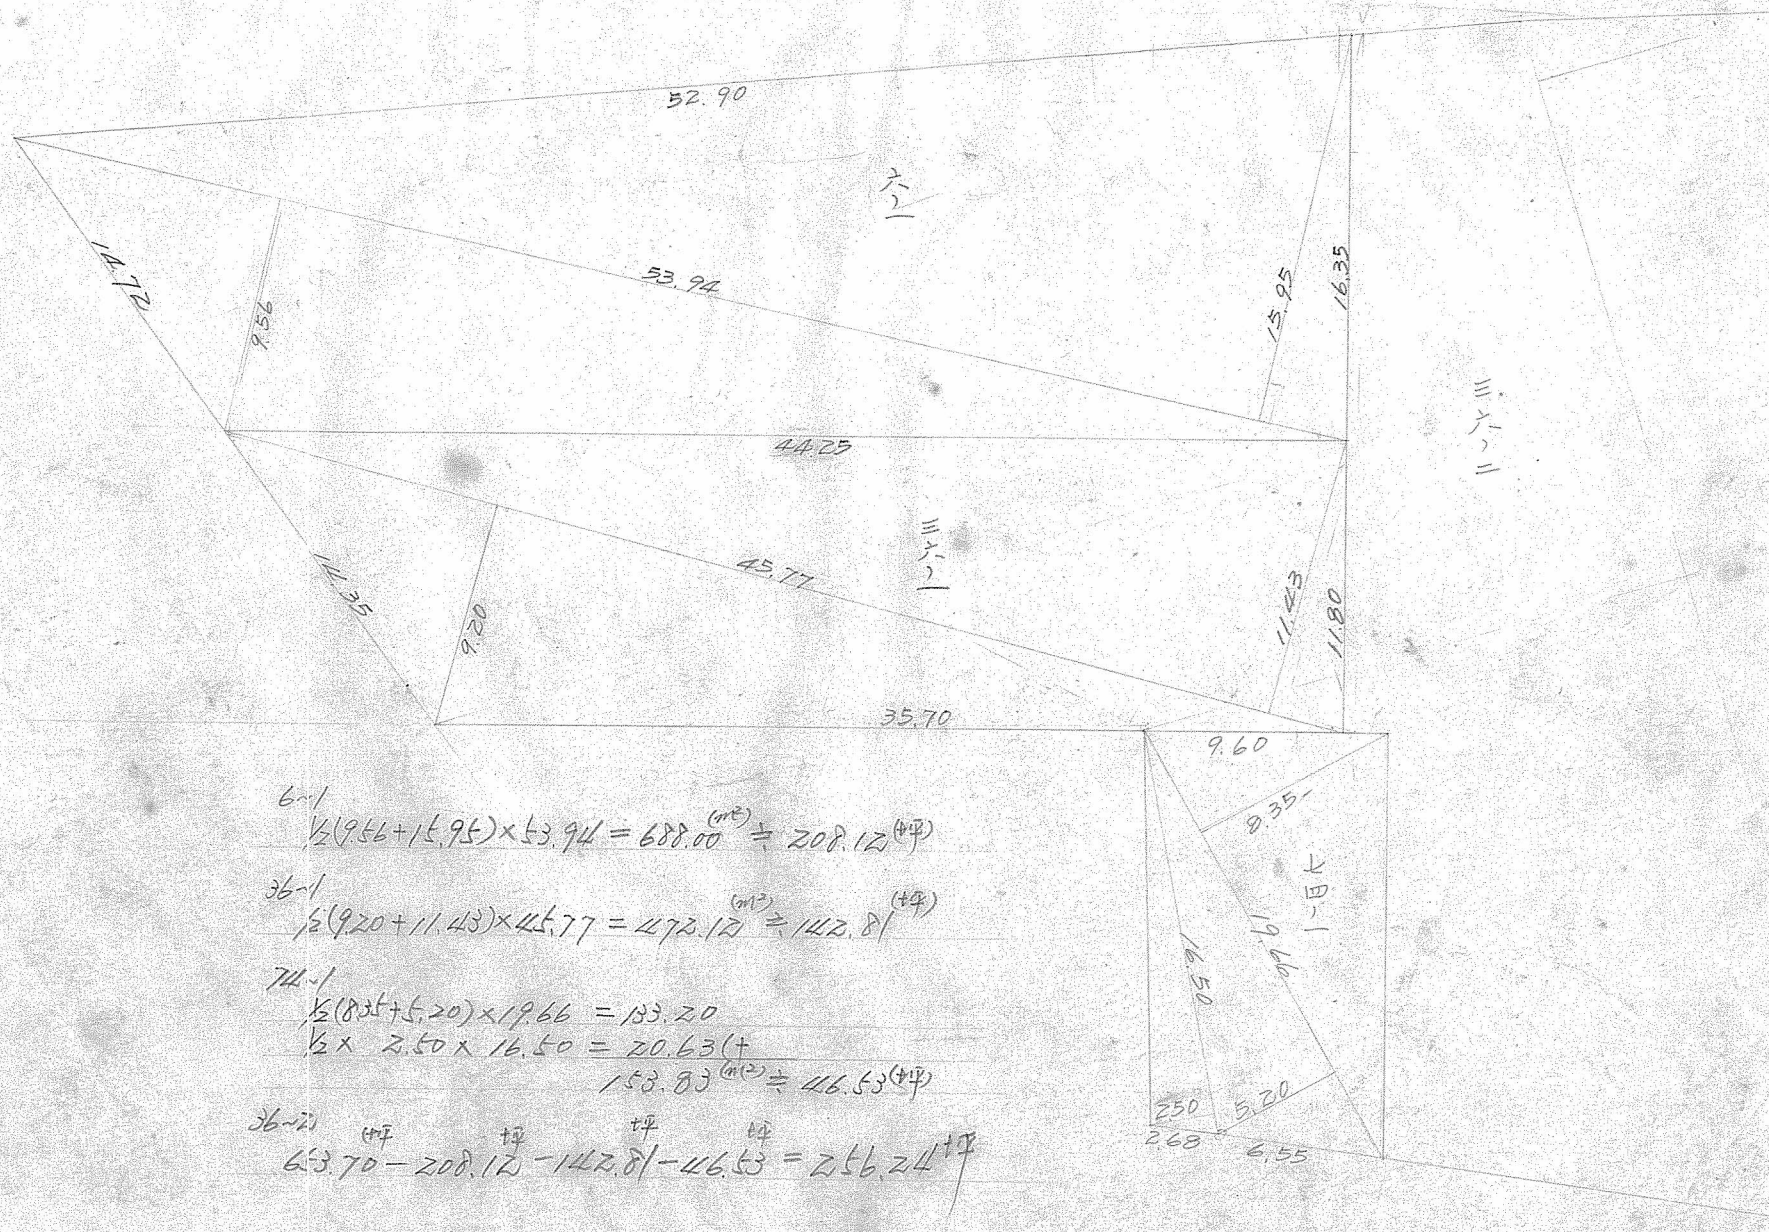 52.90
六ノ一
14.72
9.56
53.94
15.95
16.35
44.25
三六ノ二
三六ノ一
14.35
9.20
45.77
11.43
11.80
35.70
9.60
8.35
16.50
19.66
250
5.20
268
6.55
6~1
½(9.56+15.95)×53.94=688.00(m²)≑208.12(坪)
36~1
½(9.20+11.43)×45.77=472.12(m²)≑142.81(坪)
74~1
½(8.35+5.20)×19.66=133.20
½× 2.50×16.50=20.63(+
153.83(m²)≑46.53(坪)
36~2
653.70坪-208.12坪-142.81坪-46.53坪=256.24坪